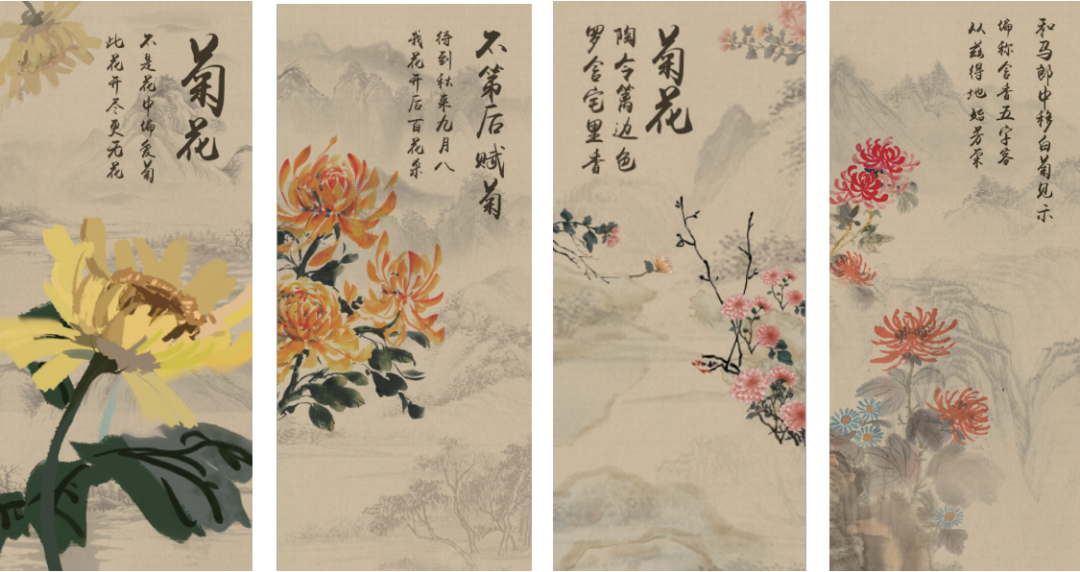 菊花
不是花中偏爱菊
此花开尽更无花
不第后赋菊
待到秋来九月八
我花开后百花杀
菊花
陶令篱边色
罗含宅里香
和马郎中移白菊见示
偏称含香五字客
从兹得地始芳荣